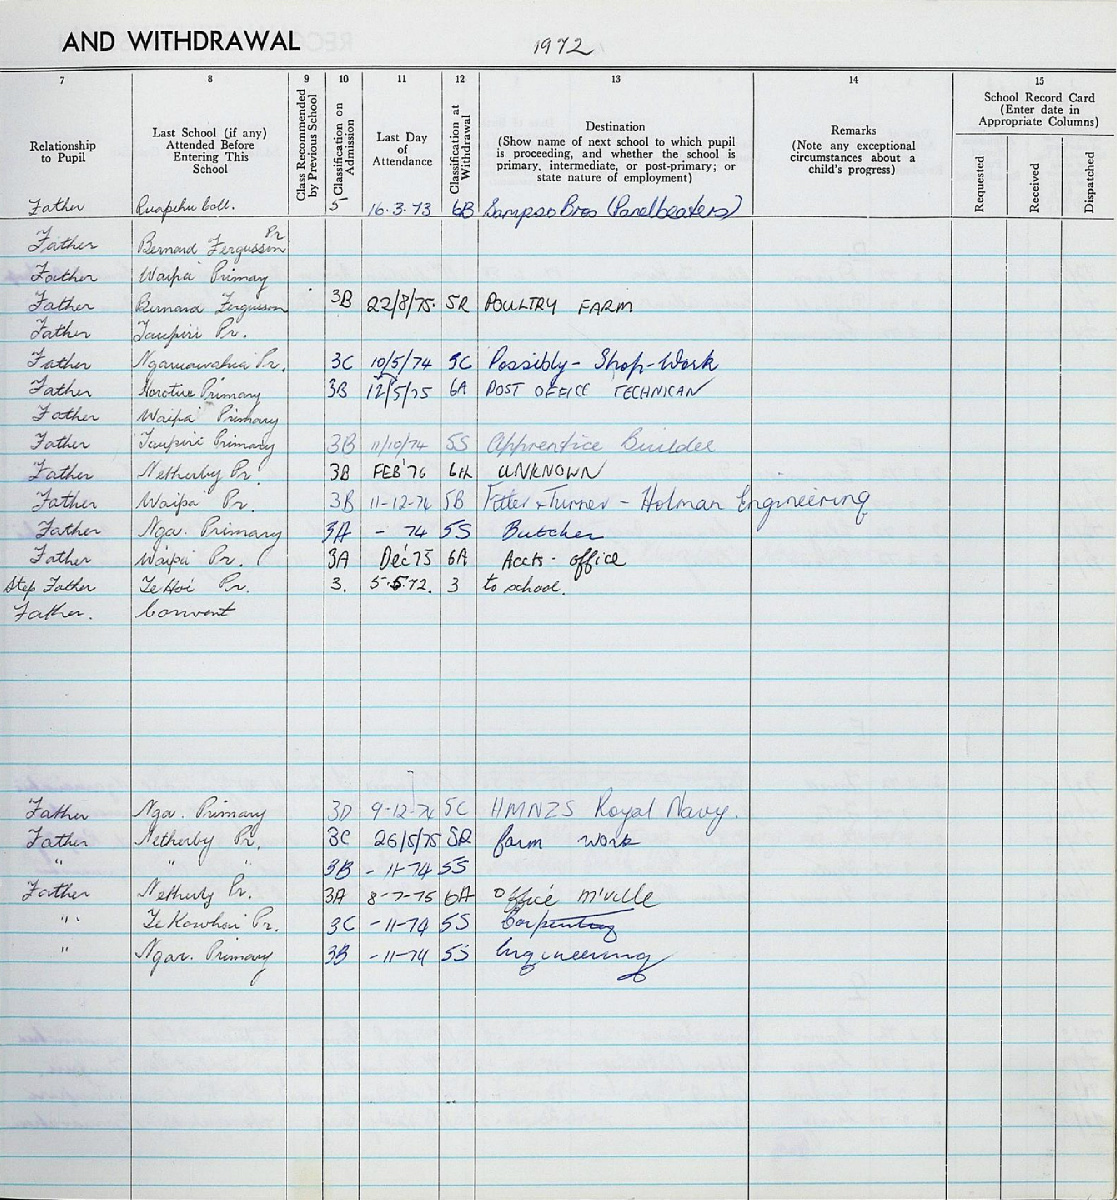 AND WITHDRAWAL 1972
7 8 9 10 11 12 13 14 15
Relationship to Pupil
Last School (if any) Attended Before Entering This School
Class Recommended by Previous School
Classification on Admission
Last Day of Attendance
Classification at Withdrawal
Destination
(Show name of next school to which pupil is proceeding, and whether the school is primary, intermediate, or post-primary; or state nature of employment)
Remarks
(Note any exceptional circumstances about a child's progress)
School Record Card
(Enter date in Appropriate Columns)
Requested Received Dispatched
Father Ruapehu Coll. 5 16.3.73 6B Sampso Bros (Panelbeaters)
Father Bernard Fergusson Pr
Father Waipa Primary
Father Bernard Fergusson 3B 22/8/75 5R POULTRY FARM
Father Taupiri Pr.
Father Ngaruawahia Pr. 3C 10/5/74 5C Possibly - Shop-Work
Father Horotiu Primary 3B 12/5/75 6A POST OFFICE TECHNICAN
Father Waipa Primary
Father Taupiri Primary 3B 11/10/74 5S Apprentice Builder
Father Netherby Pr. 3B FEB'76 6R UNKNOWN
Father Waipa Pr. 3B 11-12-74 5B Fitter & Turner - Holman Engineering
Father Nga. Primary 3A - 74 5S Butcher
Father Waipa Pr. 3A Dec 75 6A Accts. office
Step Father Te Hoe Pr. 3. 5.5.72. 3 to school.
Father. Convent
Father Nga. Primary 3D 9-12-74 5C HMNZS Royal Navy.
Father Netherby Pr. 3C 26/5/75 5R farm work
" " " 3B - 11-74 5S
Father Netherby Pr. 3A 8-7-75 6A Office M'ville
" Te Kowhai Pr. 3C - 11-74 5S Carpentry
" Ngar. Primary 3B - 11-74 5S Engineering